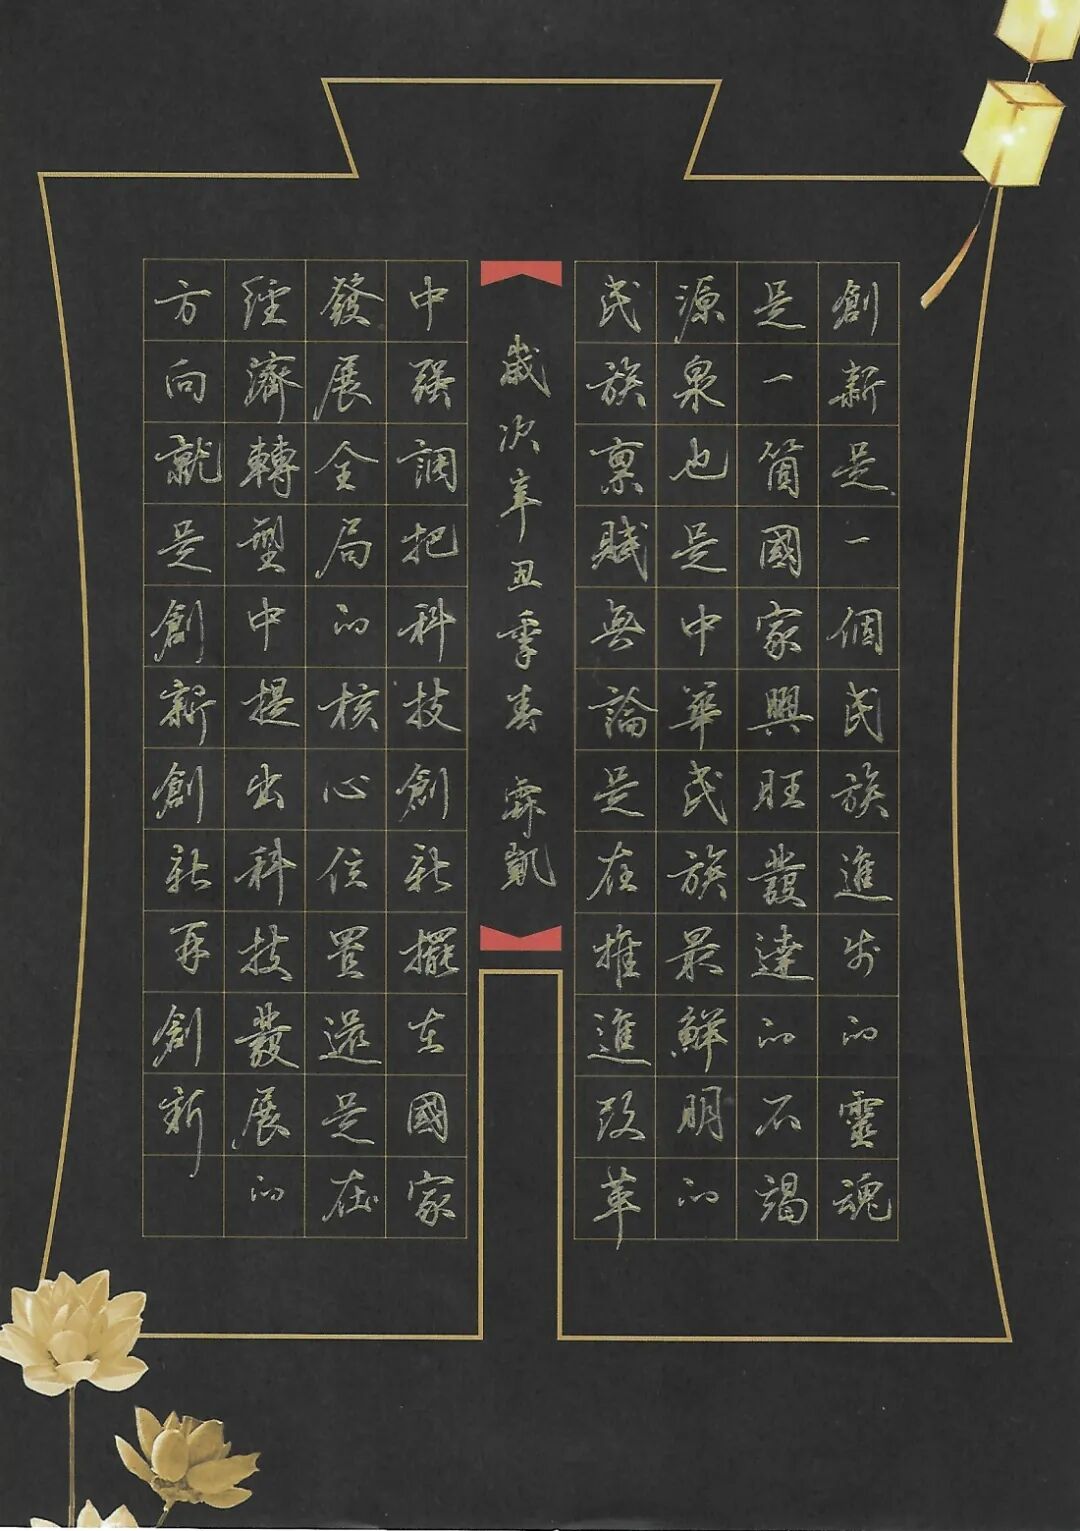 創新是一個民族進步的靈魂
是一箇國家興旺發達的不竭
源泉也是中華民族最鮮明的
民族禀賦無論是在推進改革
歲次辛丑季春 霖凱
中强調把科技創新擺在國家
發展全局的核心位置還是在
經濟轉型中提出科技發展的
方向就是創新創新再創新